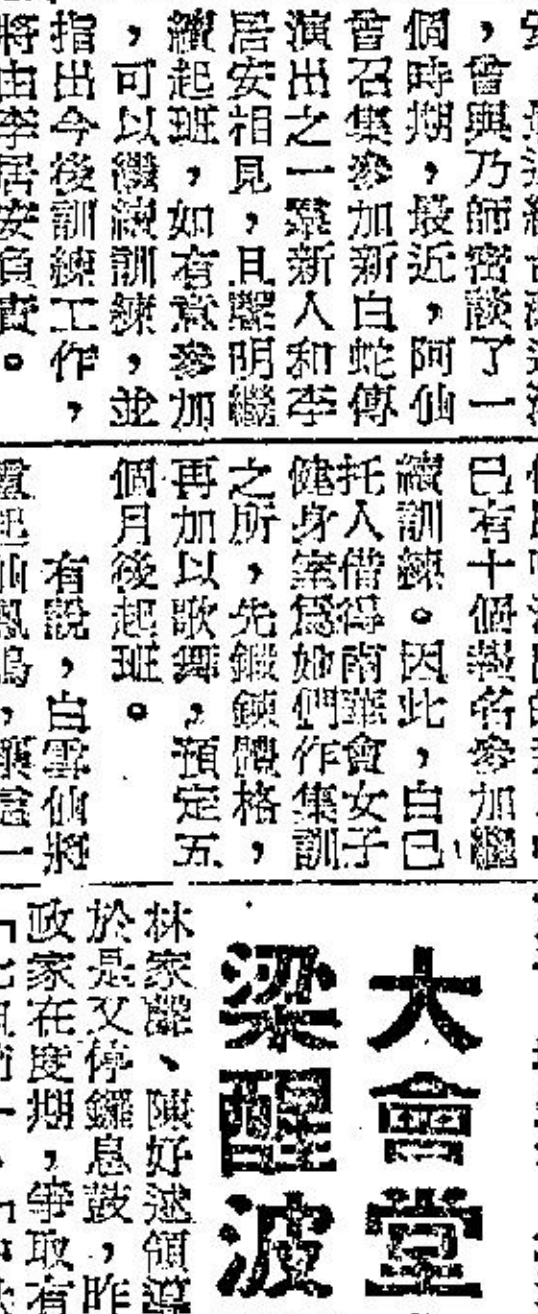 ，曾與乃師密談了一
個時期，最近，阿仙
曾召集參加新白蛇傳
演出之一羣新人和李
居安相見，且聲明繼
續起班，如有意參加
，可以繼續訓練，並
指出今後訓練工作，
將由李居安負責。
已有十個報名參加繼
續訓練。因此，白已
托人借得南華會女子
健身室爲她們作集訓
之所，先鍛鍊體格，
再加以歌舞，預定五
個月後起班。
有說，白雲仙將
大會堂
梁醒波
林家聲、陳好逑領導
於是又停鑼息鼓，昨
政家在度期，爭取有